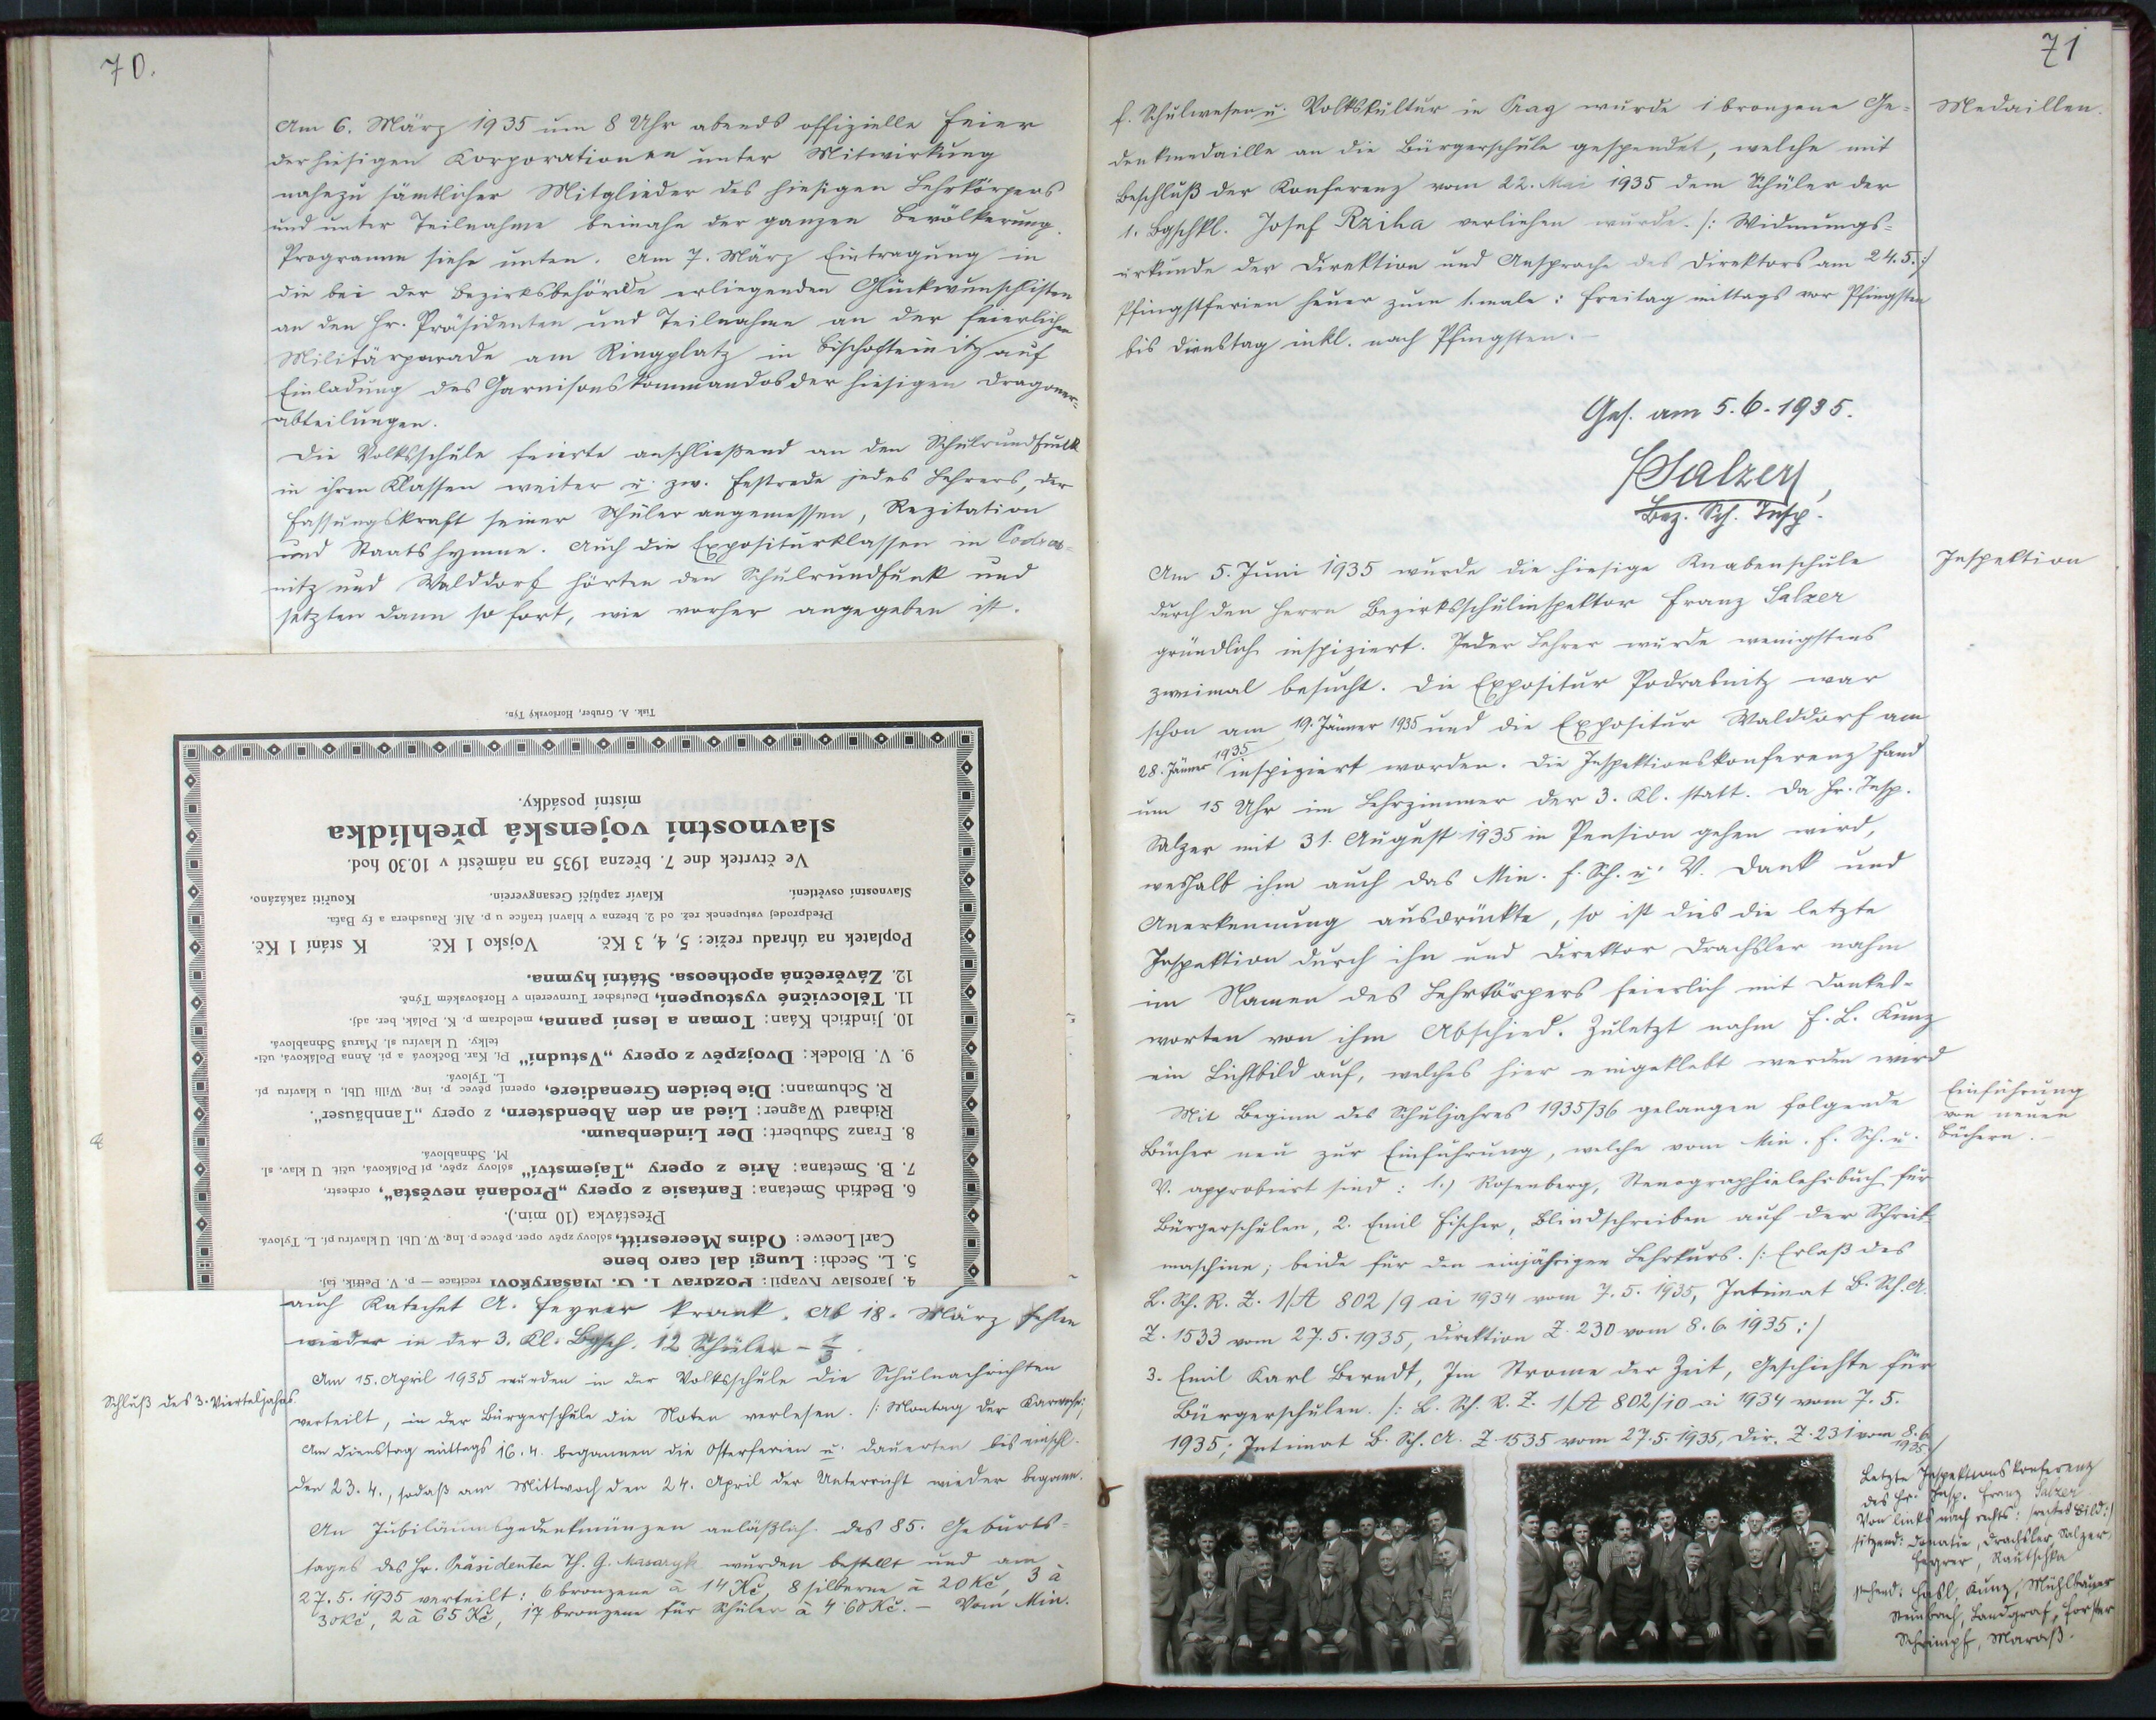 70.
Am 6. März 1935 um 8 Uhr abends offizielle Feier
der hiesigen Korporationen unter Mitwirkung
nahezu sämtlicher Mitglieder des hiesigen Lehrkörpers
und unter Teilnahme beinahe der ganzen Bevölkerung.
Programm siehe unten. Am 7. März Eintragung in
die bei der Bezirksbehörde erliegenden Glückwunschlisten
an den Hr. Präsidenten und Teilnahme an der feierlichen
Militärparade am Ringplatz in Bischofteinitz auf
Einladung des Garnisonskommandos der hiesigen Dragoner-
abteilungen.
Die Volksschule feierte anschließend an den Schulrundfunk
in ihren Klassen weiter u. zw. Festrede jedes Lehrers, der
Fassungskraft seiner Schüler angemessen, Rezitation
und Staatshymne. Auch die Expositurklassen in Podras-
nitz und Walddorf hörten den Schulrundfunk und
setzten dann so fort, wie vorher angegeben ist.
4. Jaroslav Kvapil: Pozdrav T. G. Masarykovi recitace — p. V. Petřík, taj.
5. L. Secchi: Lungi dal caro bene
Carl Loewe: Odins Meeresritt, sólový zpěv oper. pěvce p. Ing. W. Ubl. U klavíru pí. L. Tylová.
Přestávka (10 min.).
6. Bedřich Smetana: Fantasie z opery „Prodaná nevěsta", orchestr.
7. B. Smetana: Arie z opery „Tajemství" sólový zpěv, pí Poláková, učit. U klav. sl.
M. Schnablová.
8. Franz Schubert: Der Lindenbaum.
Richard Wagner: Lied an den Abendstern, z opery „Tannhäuser".
R. Schumann: Die beiden Grenadiere, operní pěvec p. ing. Willi Ubl, u klavíru pí.
L. Tylová.
9. V. Blodek: Dvojzpěv z opery „V studni" Pí, Kar. Bočková a pí. Anna Poláková, uči-
telky. U klavíru sl. Maruš Schnablová.
10. Jindřich Káan: Toman a lesní panna, melodram p. K. Polák, ber. adj.
11. Tělocvičné vystoupení, Deutscher Turnverein v Horšovském Týně.
12. Závěrečná apotheosa. Státní hymna.
Poplatek na úhradu režie: 5, 4, 3 Kč. Vojsko 1 Kč. K stání 1 Kč.
Předprodej vstupenek rež. od 2. března v hlavní trafice u p. Alf. Rauschera a fy Baťa.
Slavnostní osvětlení. Klavír zapůjčí Gesangverein. Kouřiti zakázáno.
Ve čtvrtek dne 7. března 1935 na náměstí v 10.30 hod.
slavnostní vojenská přehlídka
místní posádky.
Tisk. A. Gruber, Horšovský Týn.
auch Katechet A. Feyrer krank. Ab 18. März fehlen
wieder in der 3. Kl. Bgsch. 12 Schüler -
Schluß des 3. Vierteljahres.
Am 15. April 1935 wurden in der Volksschule die Schulnachrichten
verteilt, in der Bürgerschule die Noten verlesen. /: Montag der
Am Dienstag mittags 16.4. begannen die Osterferien u. dauerten bis einschl.
den 23.4., sodaß am Mittwoch den 24. April der Unterricht wieder begann.
An Jubiläumsgedenkmünzen anläßlich des 85. Geburts-
tages des Hr. Präsidenten Th. G. Masaryk wurden bestellt und am
27.5.1935 verteilt: 6 bronzene à 14 Kč, 8 silberne à 20 Kč, 3 à
30 Kč, 2 à 65 Kč, 17 bronzene für Schüler à 4.60 Kč. — Vom Min.
71
f. Schulwesen u. Volkskultur in Prag wurde 1 bronzene Ge-
denkmedaille an die Bürgerschule gespendet, welche mit
Beschluß der Konferenz vom 22. Mai 1935 dem Schüler der
1. Bgschkl. Josef Rziha verliehen wurde. /: Widmungs-
urkunde der Direktion und Ansprache des Direktors am 24.5.:/
Pfingstferien heuer zum 1. male: Freitag mittags vor Pfingsten
bis Dienstag inkl. nach Pfingsten. —
Medaillen.
Ges. am 5.6.1935.
FSalzer,
Bez. Sch. Insp.
Inspektion
Am 5. Juni 1935 wurde die hiesige Knabenschule
durch den Herrn Bezirksschulinspektor Franz Salzer
gründlich inspiziert. Jeder Lehrer wurde wenigstens
zweimal besucht. Die Expositur Podrasnitz war
schon am 19. Jänner 1935 und die Expositur Walddorf am
28. Jänner 1935 inspiziert worden. Die Inspektionskonferenz fand
um 15 Uhr im Lehrzimmer der 3. Kl. statt. Da Hr. Insp.
Salzer mit 31. August 1935 in Pension gehen wird,
weshalb ihm auch das Min. f. Sch. u. V. Dank und
Anerkennung ausdrückte, so ist dies die letzte
Inspektion durch ihn und Direktor Drachsler nahm
im Namen des Lehrkörpers feierlich mit Dankes-
worten von ihm Abschied. Zuletzt nahm F. L. Kunz
ein Lichtbild auf, welches hier eingeklebt werden wird
Einführung
von neuen
Büchern. —
Mit Beginn des Schuljahres 1935/36 gelangen folgende
Bücher neu zur Einführung, welche vom Min. f. Sch. u.
V. approbiert sind: 1.) Rosenberg, Stenographielehrbuch für
Bürgerschulen, 2. Emil Fischer, Blindschreiben auf der Schreib-
maschine; beide für den einjährigen Lehrkurs. /: Erlaß des
L. Sch. R. Z. 1/A 802/9 ai 1934 vom 7.5.1935, Intimat B. Sch. A.
Z. 1533 vom 27.5.1935, Direktion Z. 230 vom 8.6.1935:/
3. Emil Karl Berndt, Im Strome der Zeit, Geschichte für
Bürgerschulen. /: L. Sch. R. Z. 1/A 802/10 ai 1934 vom 7.5.
1935; Intimat B. Sch. A. Z. 1535 vom 27.5.1935, Dir. Z. 231 vom 8.6.
1935:/
Letzte Inspektionskonferenz
des Hr. Insp. Franz Salzer
Von links nach rechts: /rechtes Bild:/
sitzend: Donatin, Drachsler, Salzer,
Feyrer, Rautschka
stehend: Hasl, Kunz, Mühlbauer
Steinbach, Landgraf, Forster
Schrimpf, Maraß.